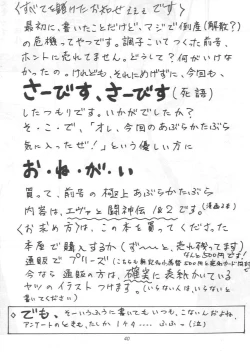 〈すべてを賭けたお知せ です〉
最初に、書いたことだけど、マジで倒産(解散?)
の危機ってやつです。調子こいてつくった前号、
ホントに売れてません。どうして?何がいけな
かったの。けれども、それにめげずに、今回も、
さーびす、さーびす(死語)
したつもりです。いかがでしたか?
そ・こ・で、「オレ、今回のあぶらかたぶら
気に入ったぜ!」という優しい方に
お・ね・が・い
買って、前号の極上あぶらかたぶら
内容は、エヴァと闘神伝1&2です。(漫画2本)
〈お求め方〉は、この本を買ってくださった
本屋で購入するか(ずーーっと、売れ残ってます)
なんと500円です!
通販で プリーズ(こちらも
今なら 通販の方は、確実に表紙かいている
ヤツのイラスト つけます。(いらない人は、いらないと
書いてください)
◇でも、そーいうふうに書いてもいつも、こないんだよね、
アンケートのときも、たしか 1イ4.... ふふっ(泣)